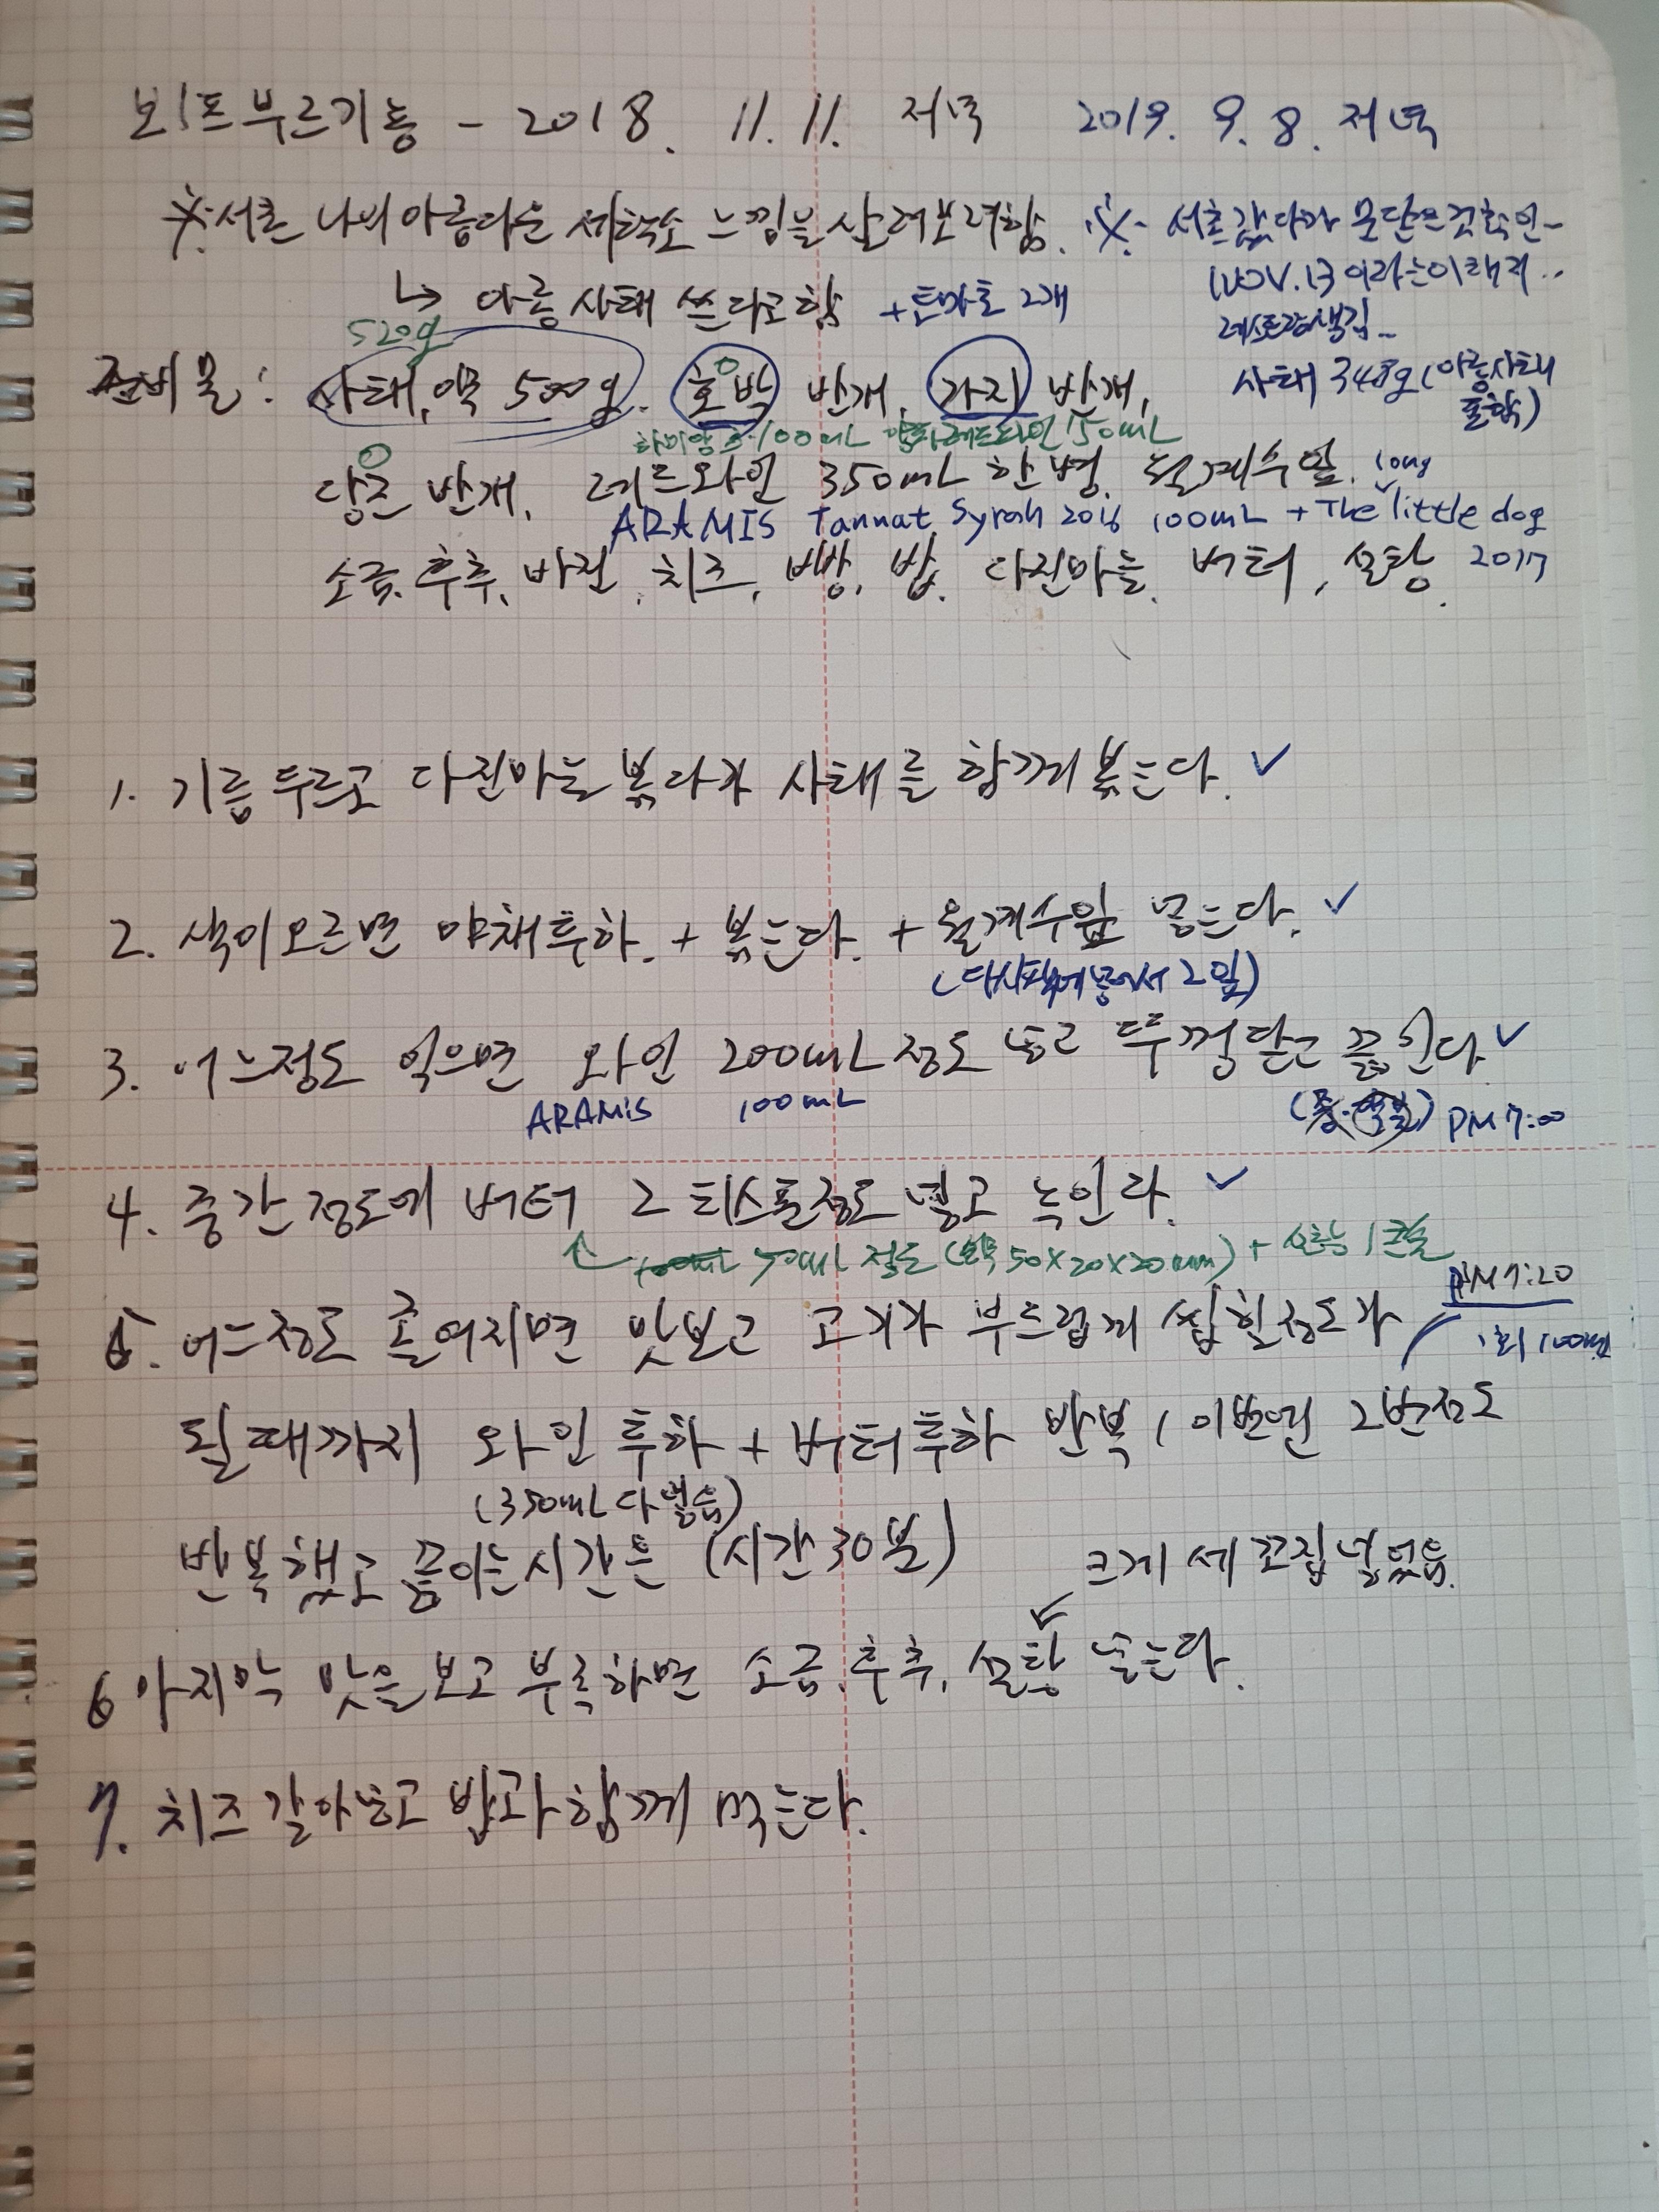 보프부르기뇽 - 2018. 11. 11. 저녁 2019. 9. 8. 저녁
※ 서촌 나비 아름다운 세탁소 느낌을 살려보려함. ※ 서촌갔다가 문닫은것 확인-
↳ 아롱사태 쓴다고함 +토마토 2개 NOV.13 이라는 이태리..
레스토랑생김_
520g
준비물: 사태, 약 500g. 호박 반개. 가지 반개, 사태 348g (아롱사태
포함)
100mL 레드와인 150mL
당근 반개, 레드와인 350mL 한병. 월계수잎.
ARAMIS Tannat Syrah 2016 100mL + The long little dog
2017
소금, 후추, 버젼, 치즈, 빵, 밥. 다진마늘. 버터, 설탕.
1. 기름 두르고 다진마늘 볶다가 사태를 함께 볶는다. ✓
2. 색이오르면 야채투하. + 볶는다. + 월계수잎 넣는다. ✓
(다시팩에 넣어서 2잎)
3. 어느정도 익으면 와인 200mL 정도 넣고 뚜껑닫고 끓인다 ✓
ARAMIS 100mL (중·약불) PM 7:00
4. 중간 정도에 버터 2 티스푼정도 넣고 녹인다. ✓
↖ 100mL 50mL 정도 (약 50×20×20mm) + 1큰술
PM 7:20
5. 어느정도 졸여지면 맛보고 고기가 부드럽게 씹힐정도가
1회 100mL
될때까지 와인투하 + 버터투하 반복 / 이번엔 2번정도
(350mL 다 넣음)
반복했고 끓이는시간은 (1시간 30분) 크게 세꼬집 넣었음.
6 마지막 맛을보고 부족하면 소금, 후추, 설탕 넣는다.
7. 치즈갈아넣고 밥과함께 먹는다.